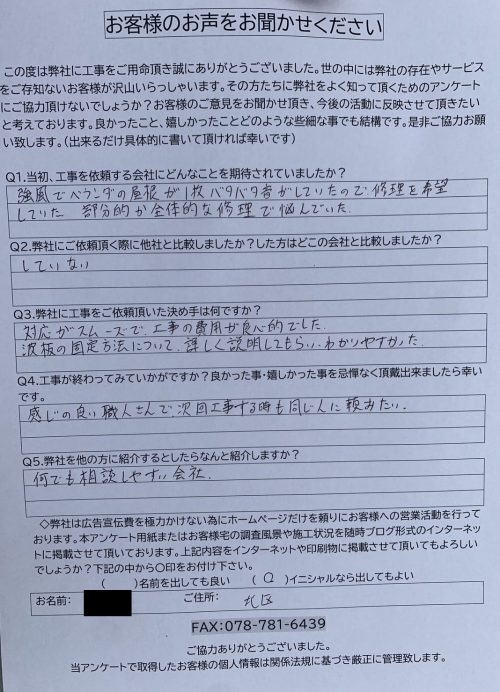 お客様のお声をお聞かせください
この度は弊社に工事をご用命頂き誠にありがとうございました。世の中には弊社の存在やサービス
をご存知ないお客様が沢山いらっしゃいます。その方たちに弊社をよく知って頂くためのアンケート
にご協力頂けないでしょうか？お客様のご意見をお聞かせ頂き、今後の活動に反映させて頂きたい
と考えております。良かったこと、嬉しかったことどのような些細な事でも結構です。是非ご協力お
願い致します。（出来るだけ具体的に書いて頂ければ幸いです）
Q1.当初、工事を依頼する会社にどんなことを期待されていましたか？
強風でベランダの屋根が1枚バタバタ音がしていたので、修理を希望
していた 部分的か全体的な修理で悩んでいた.
Q2.弊社にご依頼頂く際に他社と比較しましたか？した方はどこの会社と比較しましたか？
していない
Q3.弊社に工事をご依頼頂いた決め手は何ですか？
対応がスムーズで、工事の費用が良心的でした.
波板の固定方法について、詳しく説明してもらい、わかりやすかった.
Q4.工事が終わってみていかがですか？良かった事・嬉しかった事を忌憚なく頂戴出来ましたら幸い
です。
感じの良い職人さんで、次回工事する時も同じ人に頼みたい.
Q5.弊社を他の方に紹介するとしたらなんと紹介しますか？
何でも相談しやすい会社.
◇弊社は広告宣伝費を極力かけない為にホームページだけを頼りにお客様への営業活動を行って
おります。本アンケート用紙またはお客様宅の調査風景や施工状況を随時ブログ形式のインターネッ
トに掲載させて頂いております。上記内容をインターネットや印刷物に掲載させて頂いてもよろしい
でしょうか？下記の中から〇印をお付け下さい。
（　）名前を出しても良い　（〇）イニシャルなら出してもよい
お名前：　ご住所：　北区
FAX:078-781-6439
ご協力ありがとうございました。
当アンケートで取得したお客様の個人情報は関係法規に基づき厳正に管理致します。